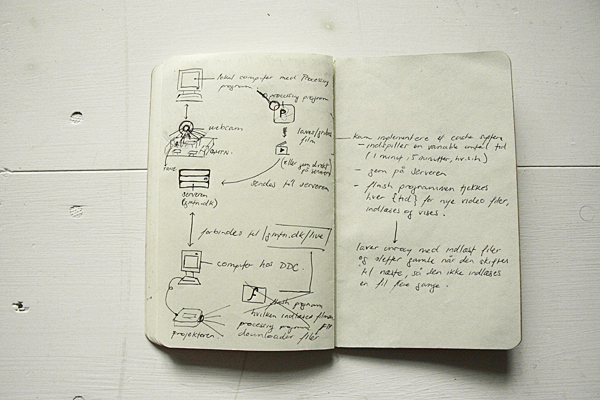 lokal computer med Processing
program
processing program
P
webcam
laves/
film
(eller gem direkte
på serveren)
sendes til serveren
serveren
(gmtn.dk)
forbindes til /gmtn.dk/live/
computer hos DDC.
f
flash program
hvilken indlæser filmen
processing program
downloader filer
projekteren
kan implementere et
- indspiller en variable antal tid
(1 minut, 5 minutter, hv.s.h)
- gem på serveren
- flash programmen tjekker
hver {tid} for nye video filer,
indlæses og vises.
laver array med indlæst filer
og sletter gamle når den skiftes
til næste, så den ikke indlæses
en fil flere gange.